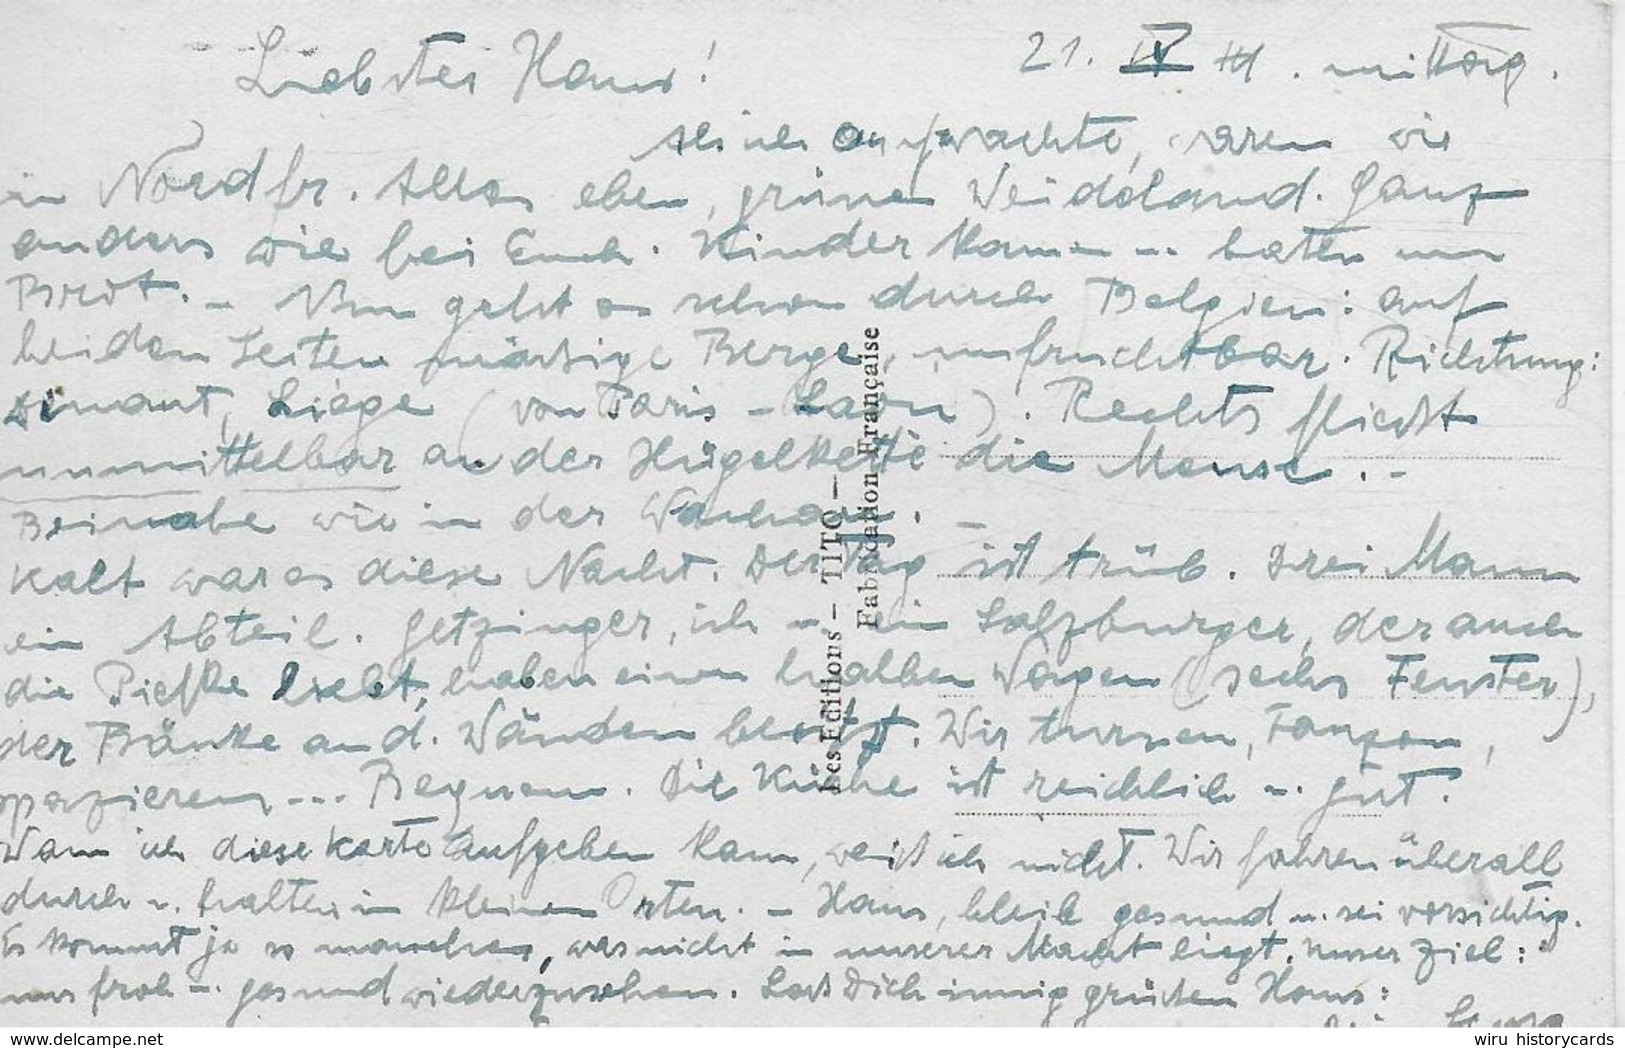 Liebster Hans! 21. IV 41. mittag.
Als ich aufwachte, waren wir
in Nordfr. Alles eben, grünes Weideland. Ganz
anders wie bei Euch. Kinder kamen u. baten um
Brot. – Nun geht es schon durch Belgien: auf
beiden Seiten mässige Berge, unfruchtbar. Richtung:
Dinant, Liège (von Paris – Laon). Rechts fließt
unmittelbar an der Hügelkette die Meuse. –
Beinahe wie in der Wachau. –
Kalt war es diese Nacht. Der Tag ist trüb. Drei Mann
ein Abteil. Getzinger, ich u. ein Salzburger, der auch
die Piefke liebt, haben einen halben Wagen (sechs Fenster),
der Bänke an d. Wänden besitzt. Wir turnen, tanzen,
spazieren... Bequem. Die Küche ist reichlich u. gut.
Wann ich diese Karte aufgeben kann, weiß ich nicht. Wir fahren überall
durch u. halten in kleinen Orten. – Hans, bleib gesund u. sei vorsichtig.
Es kommt ja so manches, was nicht in unserer Macht liegt. Unser Ziel:
uns froh u. gesund wiederzusehen. Laß Dich innig grüßen Hans:
Les Editions – TITO –
Fabrication Française
wiru historycards